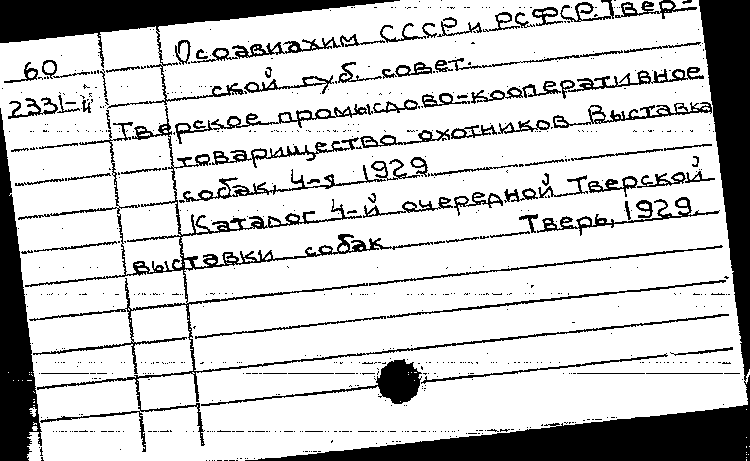 60
2331-й
Осоавиахим СССР и РСФСР. Твер-
ской губ. совет.
Тверское промыслово-кооперативное
товарищество охотников Выставка
собак, 4-я 1929
Каталог 4-й очередной Тверской
выставки собак. Тверь, 1929.